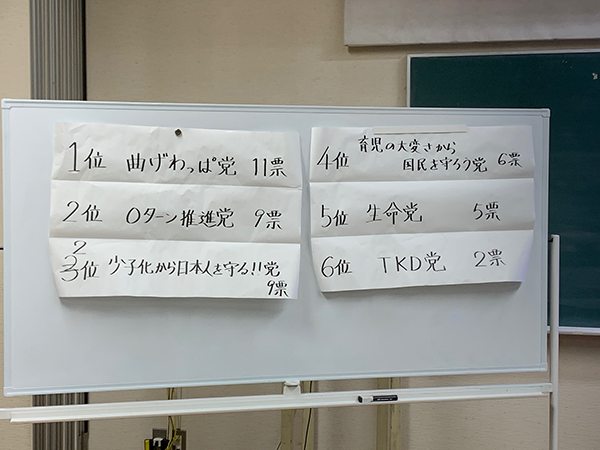 1位 曲げわっぱ党 11票
2位 Oターン推進党 9票
2
3位 少子化から日本人を守る!!党
9票
4位 育児の大変さから
国民を守ろう党 6票
5位 生命党 5票
6位 TKD党 2票